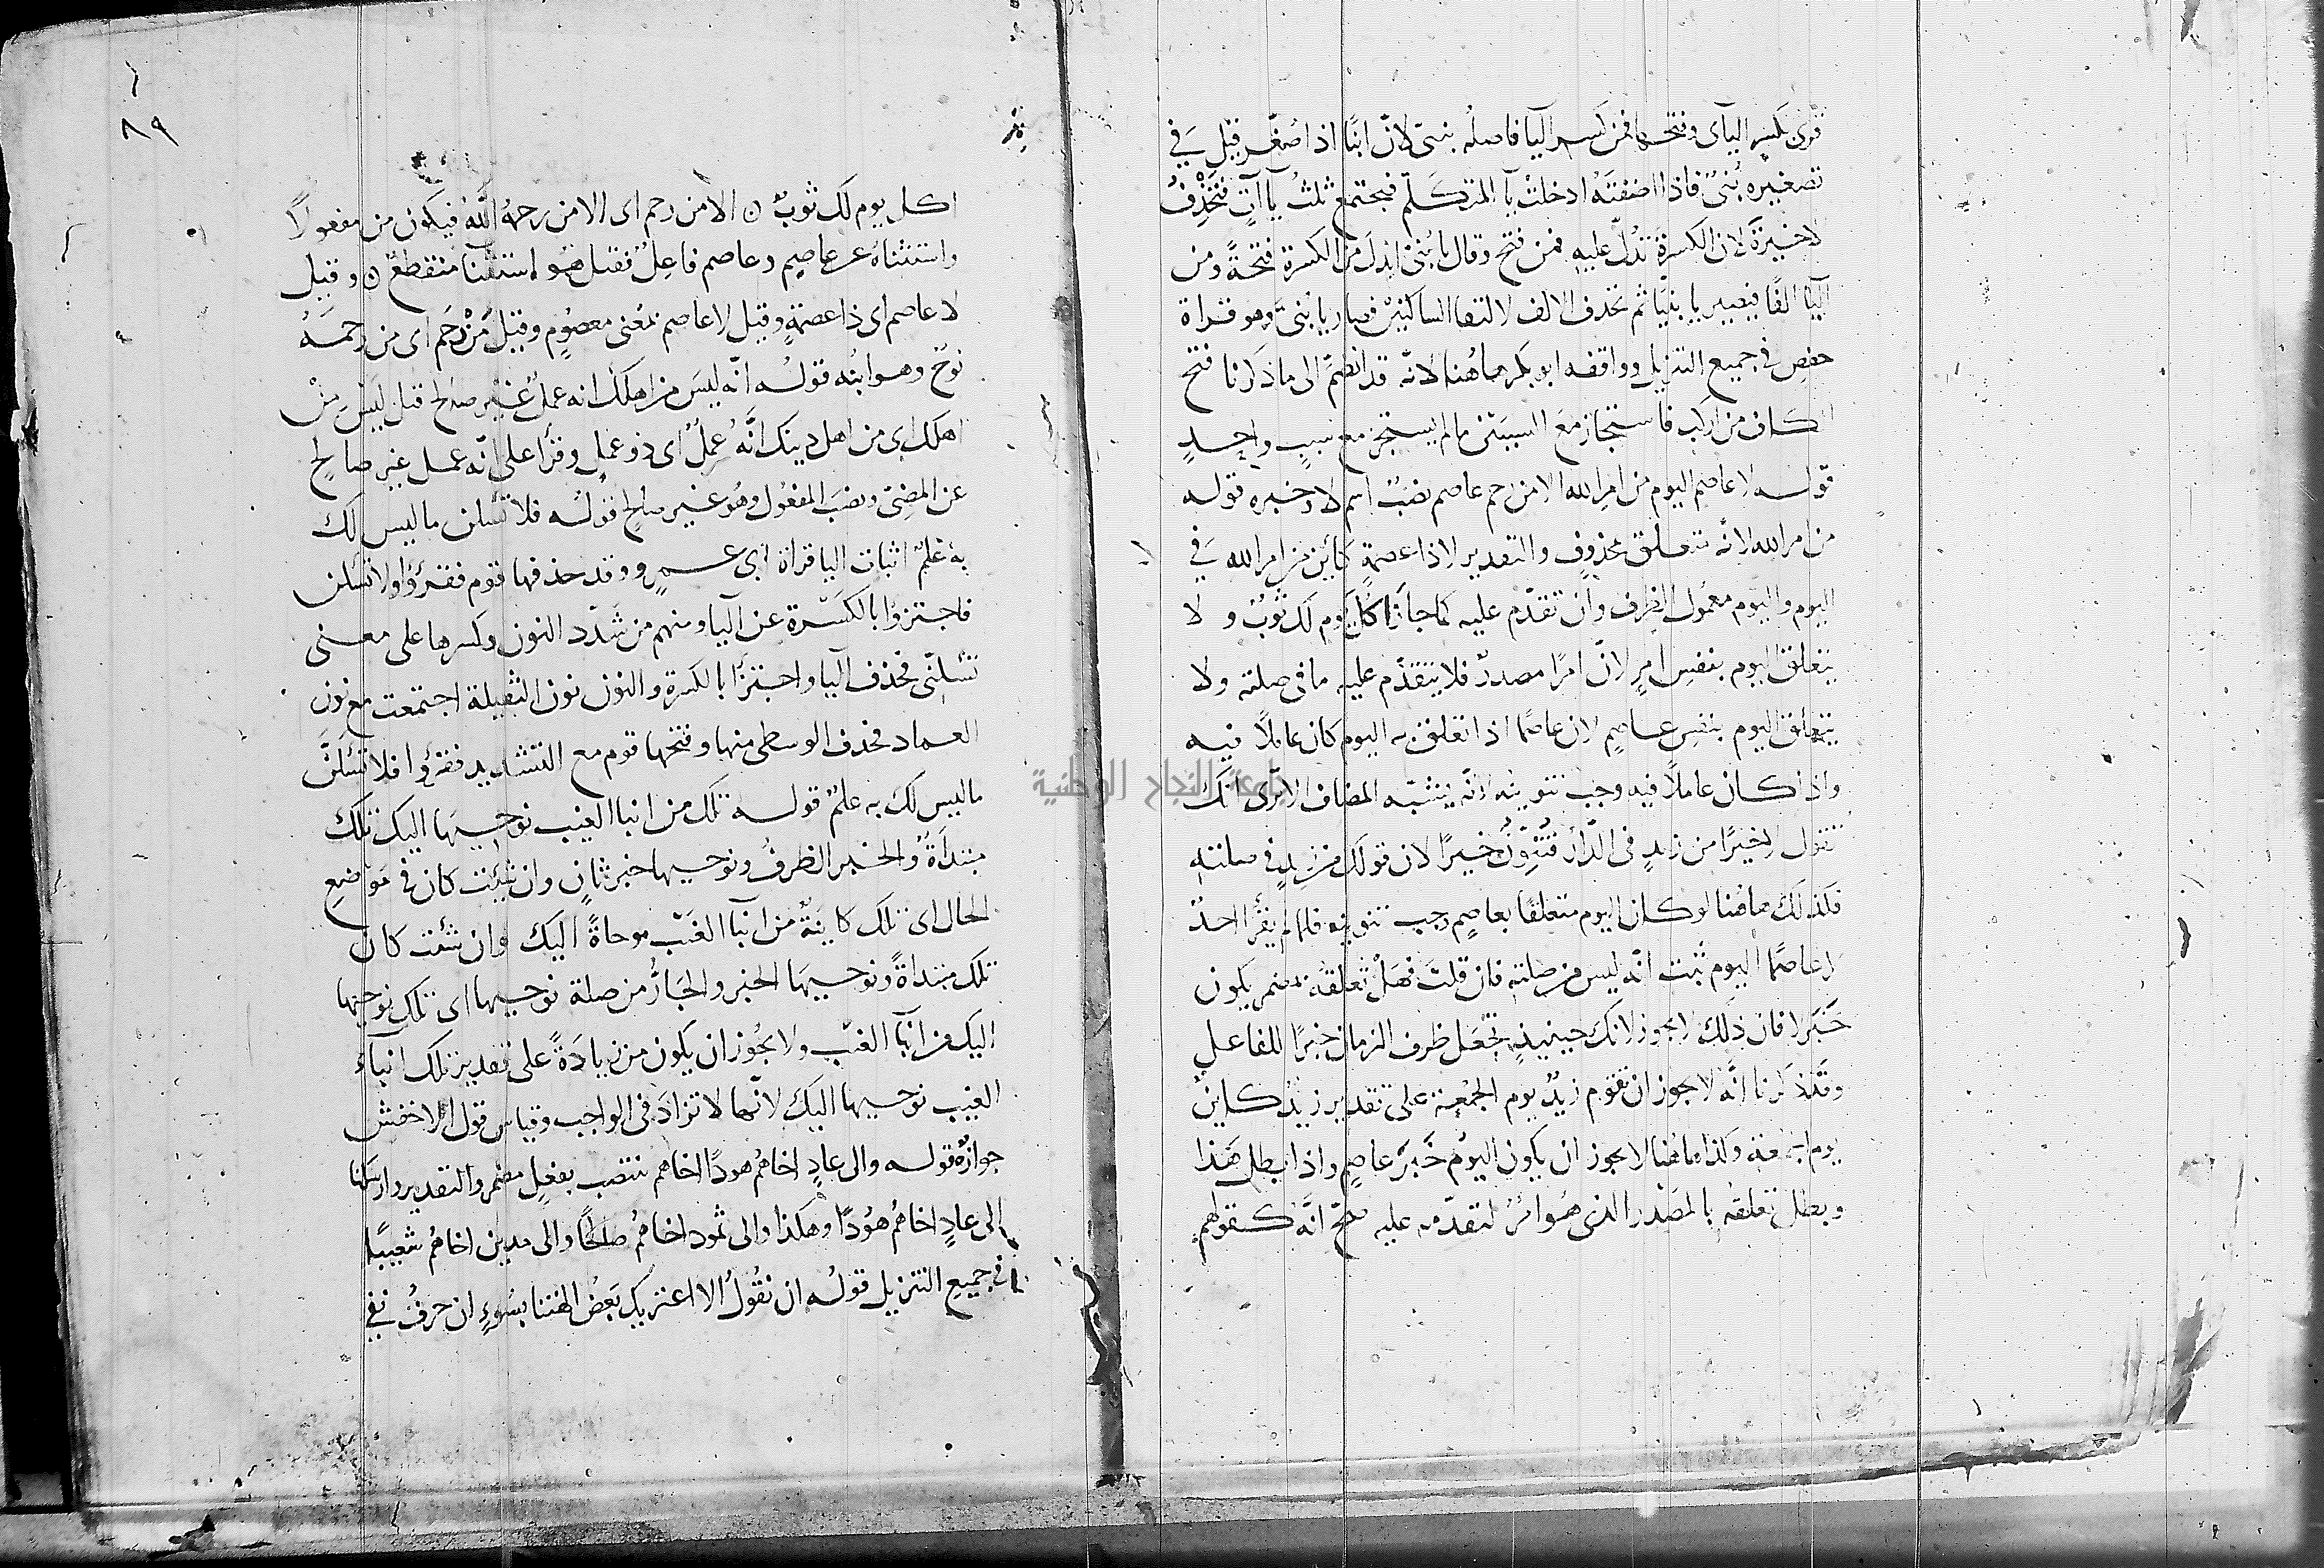 قرئ بكسر الياى وفتحها فمن كسر اليا فاصله بنيى لانّ ابنًا اذا صُغّر قيل في
تصغيره بُنيّ فاذا اضفتَه ادخلتْ يآ المتكلّم فيجتمع ثلثُ يآاتٍ فتحْذِفُ
لاخيرةَ لان الكسرةَ تدُلّ عليه فمن فتح وقال يا بُنيّ ابدلَ من الكسرة فتحةً ومن
اليا الفًا فيصير يا بنيّا ثم تحذف الالف لالتقا الساكنين فصار يا بنيَّ وهو قراة
حفصٍ في جميع التنزيل ووافقه ابو بكر هاهُنا لانّه قد انضمّ الى ما ذكرنا فتح
الكاف من اركب فاستجاز معَ السببَيْن ما لم يستجز مع سببٍ واحدٍ
قوله لا عاصم اليوم من امر الله الا من رحم عاصم نصبٌ اسم لا وخبره قوله
من امر الله لانّه يتعلق بمحذوفٍ والتقدير لا ذا عصمةٍ كائنٌ من امر الله في
اليوم واليوم معمول الظرف وان تقدّم عليه كما جاز اكلّ يوم لك ثوبٌ ولا
يتعلق اليوم بنفسِ امرٍ لانّ امرًا مصدرٌ فلا يتقدّم عليه ما في صلته ولا
يتعلق اليوم بنفسِ عاصمٍ لان عاصمًا اذا تعلق به اليوم كان عاملًا فيه
واذا كان عاملًا فيه وجب تنوينه لانّه يشبّه المضاف الا ترى انك
تقول لا خيرًا من زيدٍ في الدّار فتُنِوّنُ خيرًا لان قولك من زيدٍ في صلته
فكذلك هاهُنا لو كان اليوم متعلقًا بعاصمٍ وجب تنوينه فلما لم يقرا احدٌ
لا عاصمًا اليوم ثبت انّه ليس من صلته فان قلتَ فهَلْ تعلقه بمضمر يكون
خَبَر لا فان ذلك لا يجوز لانك حينيذٍ تجعل ظرف الزمان خبرًا للفاعل
وقد ذكرنا انّه لا يجوز ان تقوم زيدٌ يوم الجُمْعة على تقدير زيدٌ كاينٌ
يوم الجمعة وكذا هاهُنا لا يجوز ان يكون اليوم خَبَرَ عاصم واذا بطل هذا
وبطل تعلقه بالمصْدر الذى هو امرٌ لتقدّمه عليه صحّ انّه كقولهم
٨٩
اكل يوم لك ثوبٌ ن الا من رحم اى الا من رحمهُ اللّهُ فيكون من مفعولاً
واستثناهُ عن عاصمٍ وعاصم فاعِلٌ فقيل هو استثنآ منقطع ن وقيل
لا عاصم اى ذا عصمةٍ وقيل لا عاصم بمعْنى معصُومٍ وقيل مَنْ رَحِم اى من رحمَهُ
نوحٌ وهو ابنُه قولُه انّه ليسَ من اهلك انه عملٌ غيْر صالحٍ قيل ليس منْ
اهلك اى من اهل دينك انَّه عملٌ اى ذو عملٍ وقرأ على انّه عمل غير صالحٍ
عن المضِيّ ونصَب المفعُول وهو غير صالحٍ قولُه فلا تسألن ما ليس لك
به علمٌ اثبات اليا قراة ابى عمرٍو وقد حذفها قوم فقرؤا ولا تسئلن
فاجتزؤا بالكسْرة عن اليا ومنهم من شدّد النون وكسرها على معنى
تسئلنّى فحذف اليا واجتزأ بالكسرة والنون نون الثقيلة اجتمعت مع نون
العماد فحذف الوسطى منها وفتحها قوم مع التشديد فقرؤا فلا تسئلنَّ
ما ليس لكَ به علمٌ قوله تلك من انبا الغيب نوحيهَا اليك تلك
مبتدأةٌ والخبر الظرفُ ونوحيها خبر ثانٍ وان شئت كان في موضعِ
الحال اى تلك كاينةٌ من انبآ الغَيْب موحاةً اليك وان شئت كان
تلك مبتداةً ونوحيهَا الخبر والجَارُّ من صلة نوحيها اى تلك نوحيها
اليك من انبآ الغيب ولا يجُوز ان يكون من زيادَةً على تقدير تلك انباء
الغيب نوحيها اليكَ لانّها لا تزادَ فى الواجب وقياس قول الاخفش
جوازُه قوله والى عادٍ اخاهُم هودًا اخاهم ينتصب بفعلٍ مضمر والتقدير وارسلنا
الى عادٍ اخاهُم هُودًا وهكذا والى ثمود اخاهُم صلحًا والى مدين اخاهُم شعيبًا
في جميع التنزيل قولُه ان نقُولُ الا اعتريك بَعضُ الهتنا بسُوءٍ ان حرفُ نفي
جامعة النجاح الوطنية